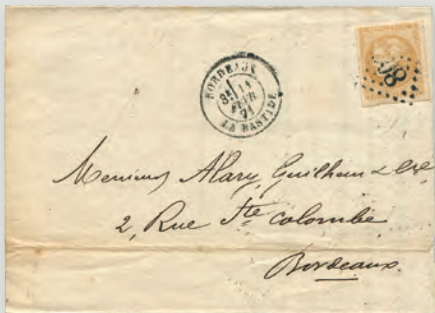 BORDEAUX
3E 14
FEVR
71
LA BASTIDE
Messieurs Alary, Guilhem & Cie
2, Rue Ste Colombe
Bordeaux.